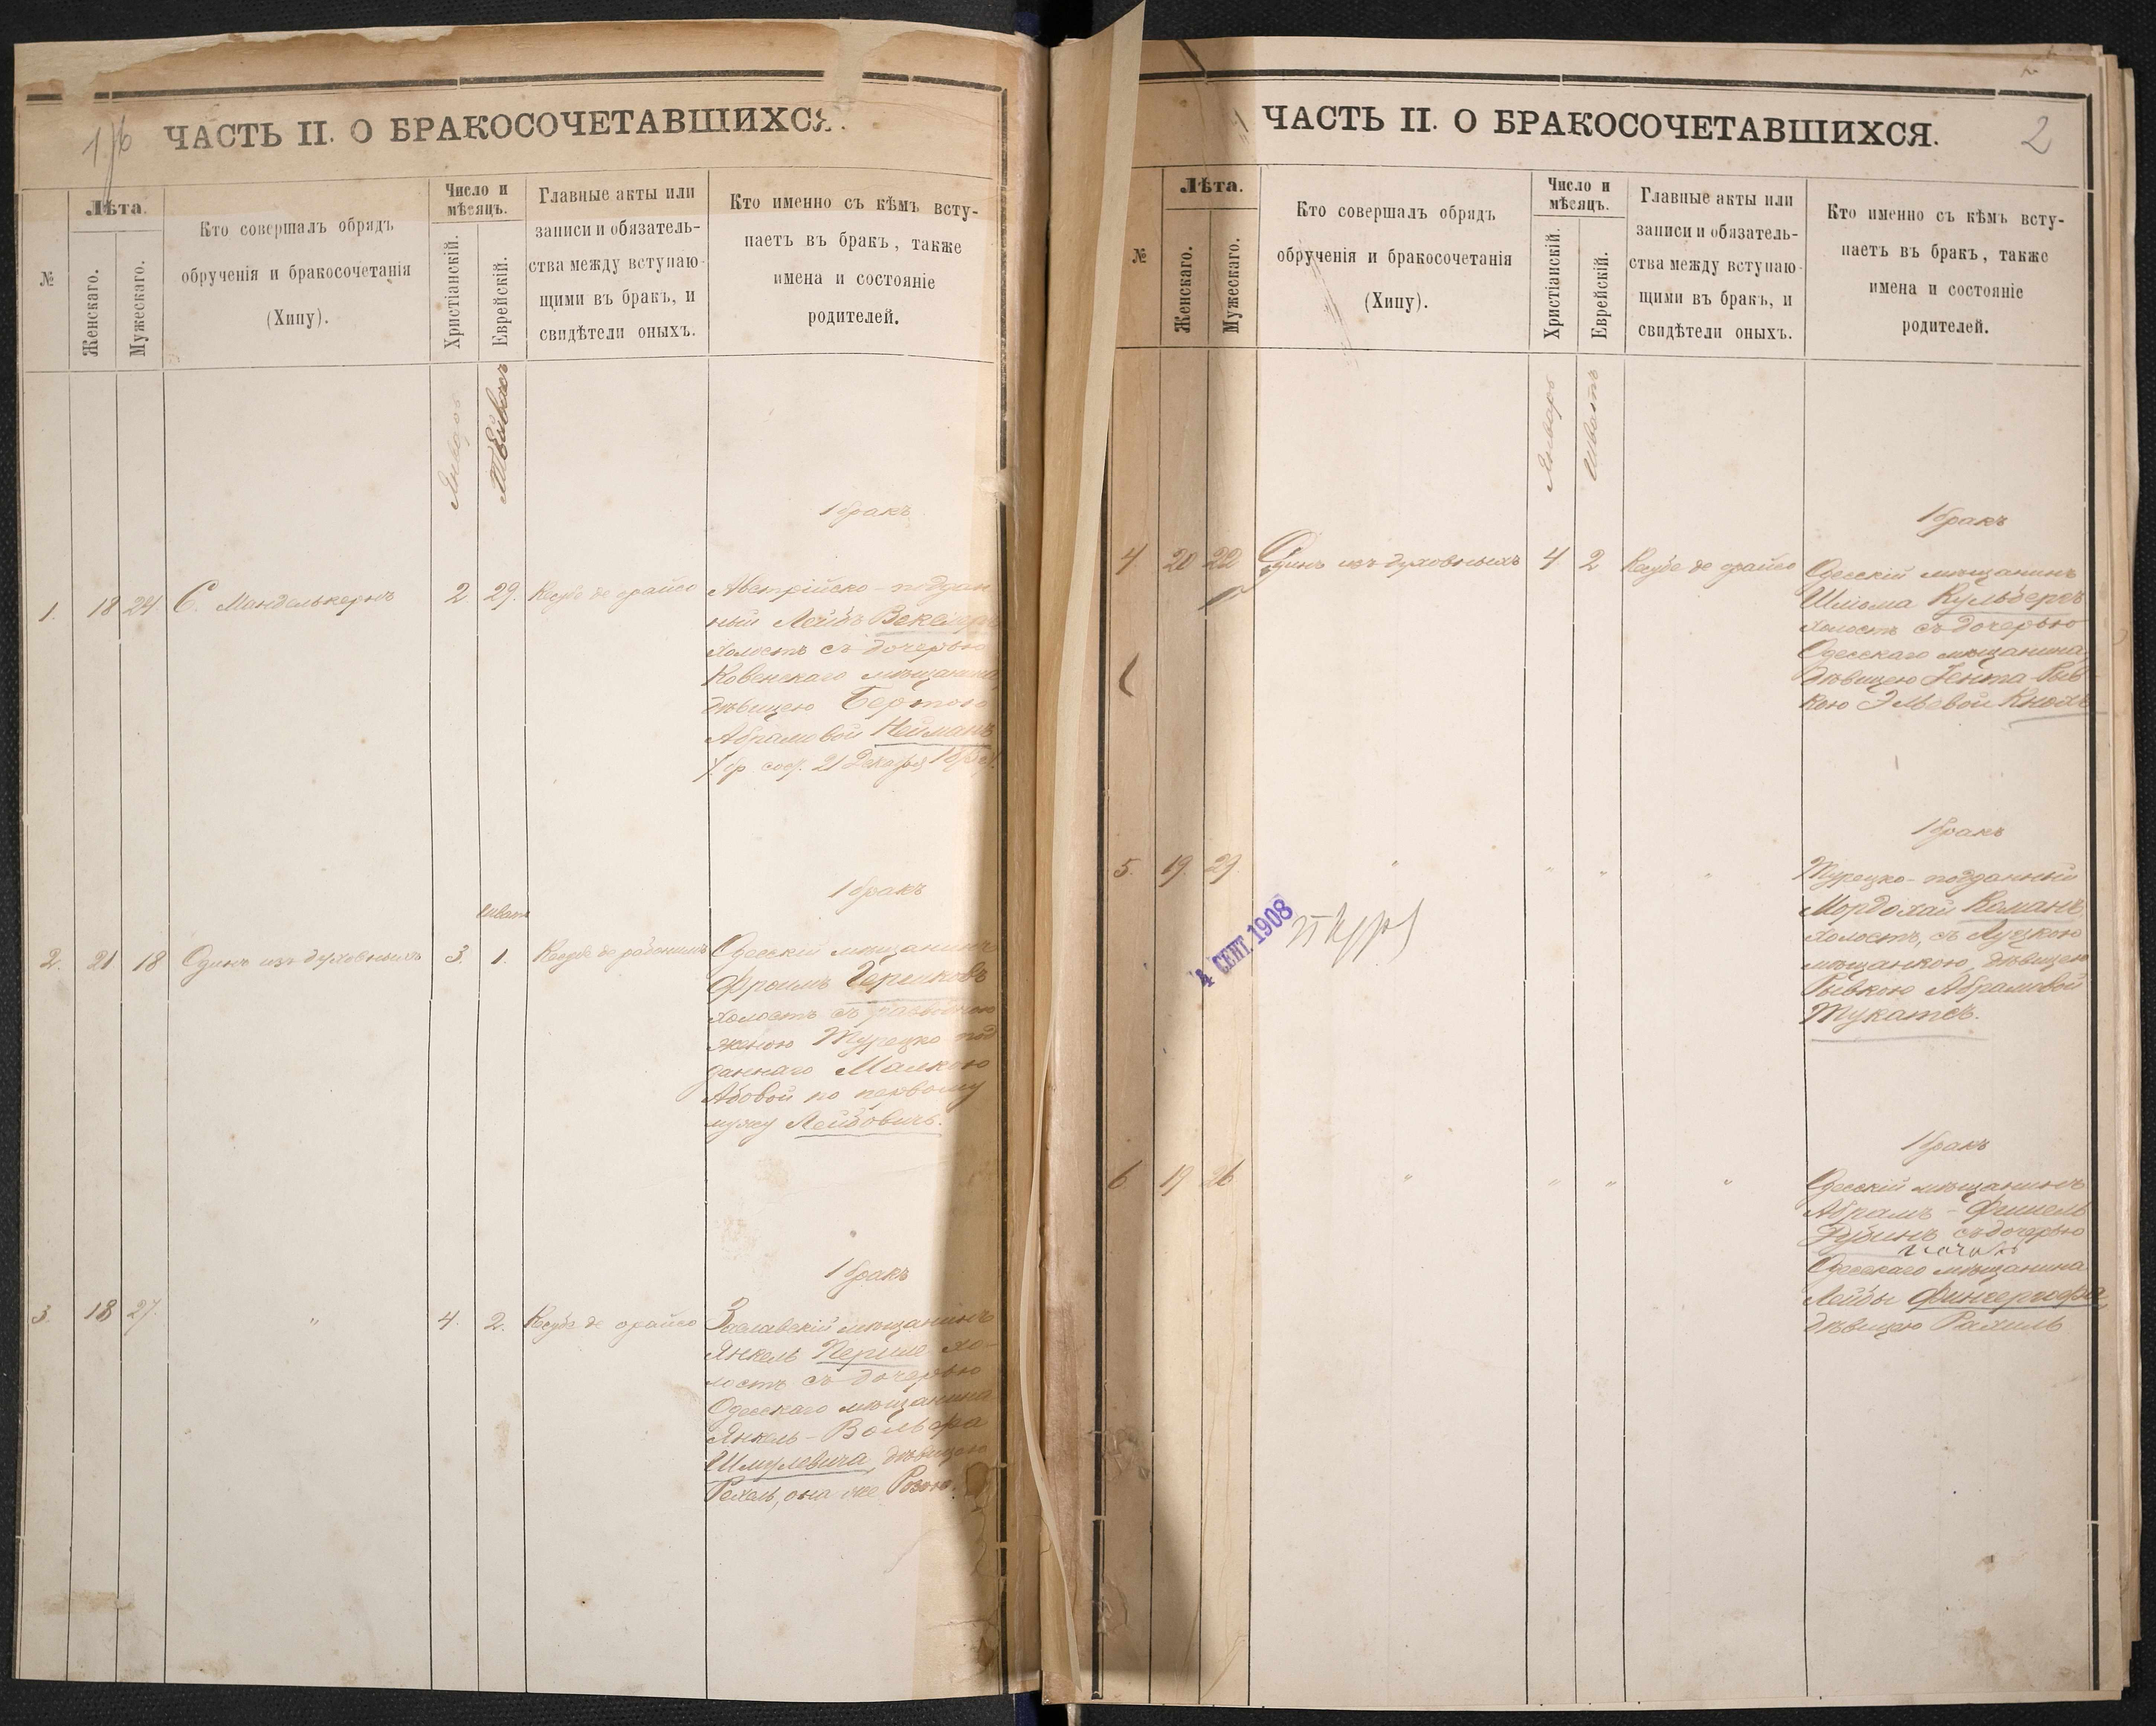 1/б
ЧАСТЬ II. О БРАКОСОЧЕТАВШИХСЯ.
№
Лѣта.
Женскаго.
Мужескаго.
Кто совершалъ обрядъ
обрученія и бракосочетанія
(Хипу).
Число и
мѣсяцъ.
Христіанскій.
Еврейскій.
Главные акты или
записи и обязатель-
ства между вступаю-
щими въ бракъ, и
свидѣтели оныхъ.
Кто именно съ кѣмъ всту-
паетъ въ бракъ, также
имена и состояніе
родителей.
Январь
1 бракъ
1. 18 24. С. Манделькернъ 2. 29. Кесубе де орайсо
Австрійско-поддан
ный Лейбъ
холостъ съ дочерью
Ковенскаго мѣщанина
дѣвицею Бертою
Абрамовой Нейманъ
21 Декабря
1 бракъ
Шватъ
2. 21 18 Одинъ изъ духовныхъ 3. 1. Кесубе де
Одесскій мѣщанинъ
Фроимъ
холостъ съ разводною
женою Турецко под
даннаго Малкою
Абовой по первому
мужу Лейбовичъ.
1 бракъ
3. 18 27. " 4. 2. Кесубе де орайсо
Заславскій мѣщанинъ
Янкель хо-
лостъ съ дочерью
Одесскаго мѣщанина
Янкель-Вольфа
Шмулевича, дѣвицею
Рехель, она же Розою.
ЧАСТЬ II. О БРАКОСОЧЕТАВШИХСЯ.
2
№
Лѣта.
Женскаго.
Мужескаго.
Кто совершалъ обрядъ
обрученія и бракосочетанія
(Хипу).
Число и
мѣсяцъ.
Христіанскій.
Еврейскій.
Главные акты или
записи и обязатель-
ства между вступаю-
щими въ бракъ, и
свидѣтели оныхъ.
Кто именно съ кѣмъ всту-
паетъ въ бракъ, также
имена и состояніе
родителей.
Январь
Шватъ
1 бракъ
4. 20 22 Одинъ изъ духовныхъ 4 2 Кесубе де орайсо
Одесскій мѣщанинъ
Шліома Кульбергъ
холостъ съ дочерью
Одесскаго мѣщанина,
дѣвицею Гента-Рыв
кою Эльевой Кнохъ
1 бракъ
5. 19. 29. " " " "
Турецко-подданный
Мордохай Команъ
холостъ, съ Луцкою
мѣщанкою, дѣвицею
Рывкою Абрамовой
Тукатсъ.
4 СЕНТ. 1908
1 бракъ
6 19 26 " " " "
Одесскій мѣщанинъ
Абрамъ-Фишель
Рубинъ съ дочерью
Одесскаго мѣщанина
Лейбы Фингергофа,
дѣвицею Рахиль